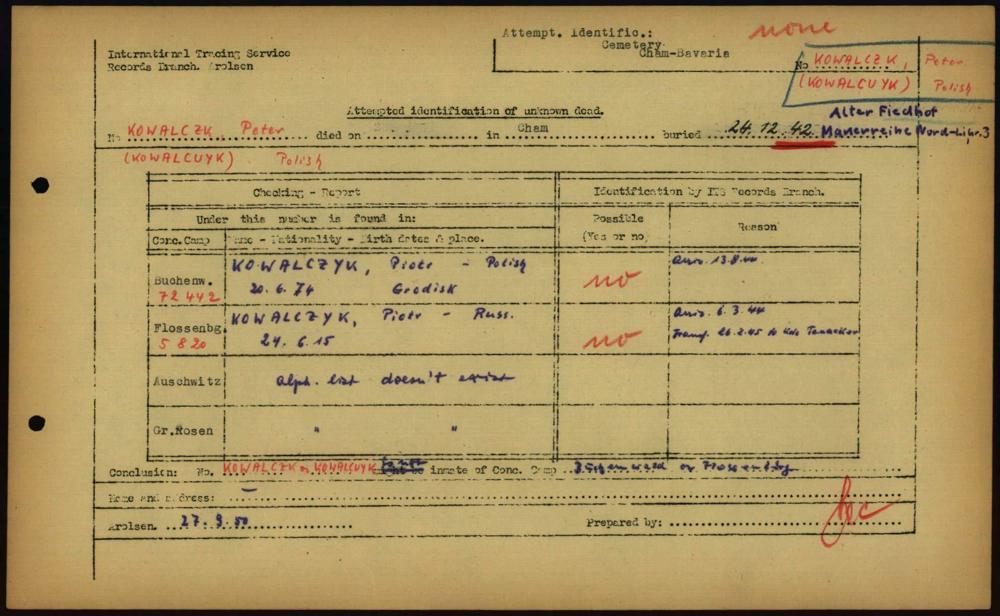 Attempt. Identific.:
none
Cemetery
Cham-Bavaria
International Tracing Service
Records Branch. Arolsen
No KOWALCZK, Peter
(KOWALCUYK) Polish
Attempted identification of unknown dead.
Alter Fiedhof
No KOWALCZK Peter died on .......... in Cham .......... buried 24.12.42 Mauerreihe Nord-
(KOWALCUYK) Polish
Checking - Report
Identification by ITS Records Branch.
Under this number is found in:
Possible
(Yes or no)
Reason
Conc.Camp
Name - Nationality - Birth dates & place.
Buchenw.
72442
KOWALCZYK, Piotr - Polish
20.6.74 Grodisk
no
Flossenbg.
5820
KOWALCZYK, Piotr - Russ.
24.6.15
no
Arriv. 6.3.44
Transf. 26.2.45 to
Auschwitz
alph. list doesn't exist
Gr.Rosen
" "
Conclusion: No. KOWALCZK or KOWALCUYK inmate of Conc. Camp Buchenwald or Flossenbürg
Name and address: –
Arolsen. 27.9.50
Prepared by: